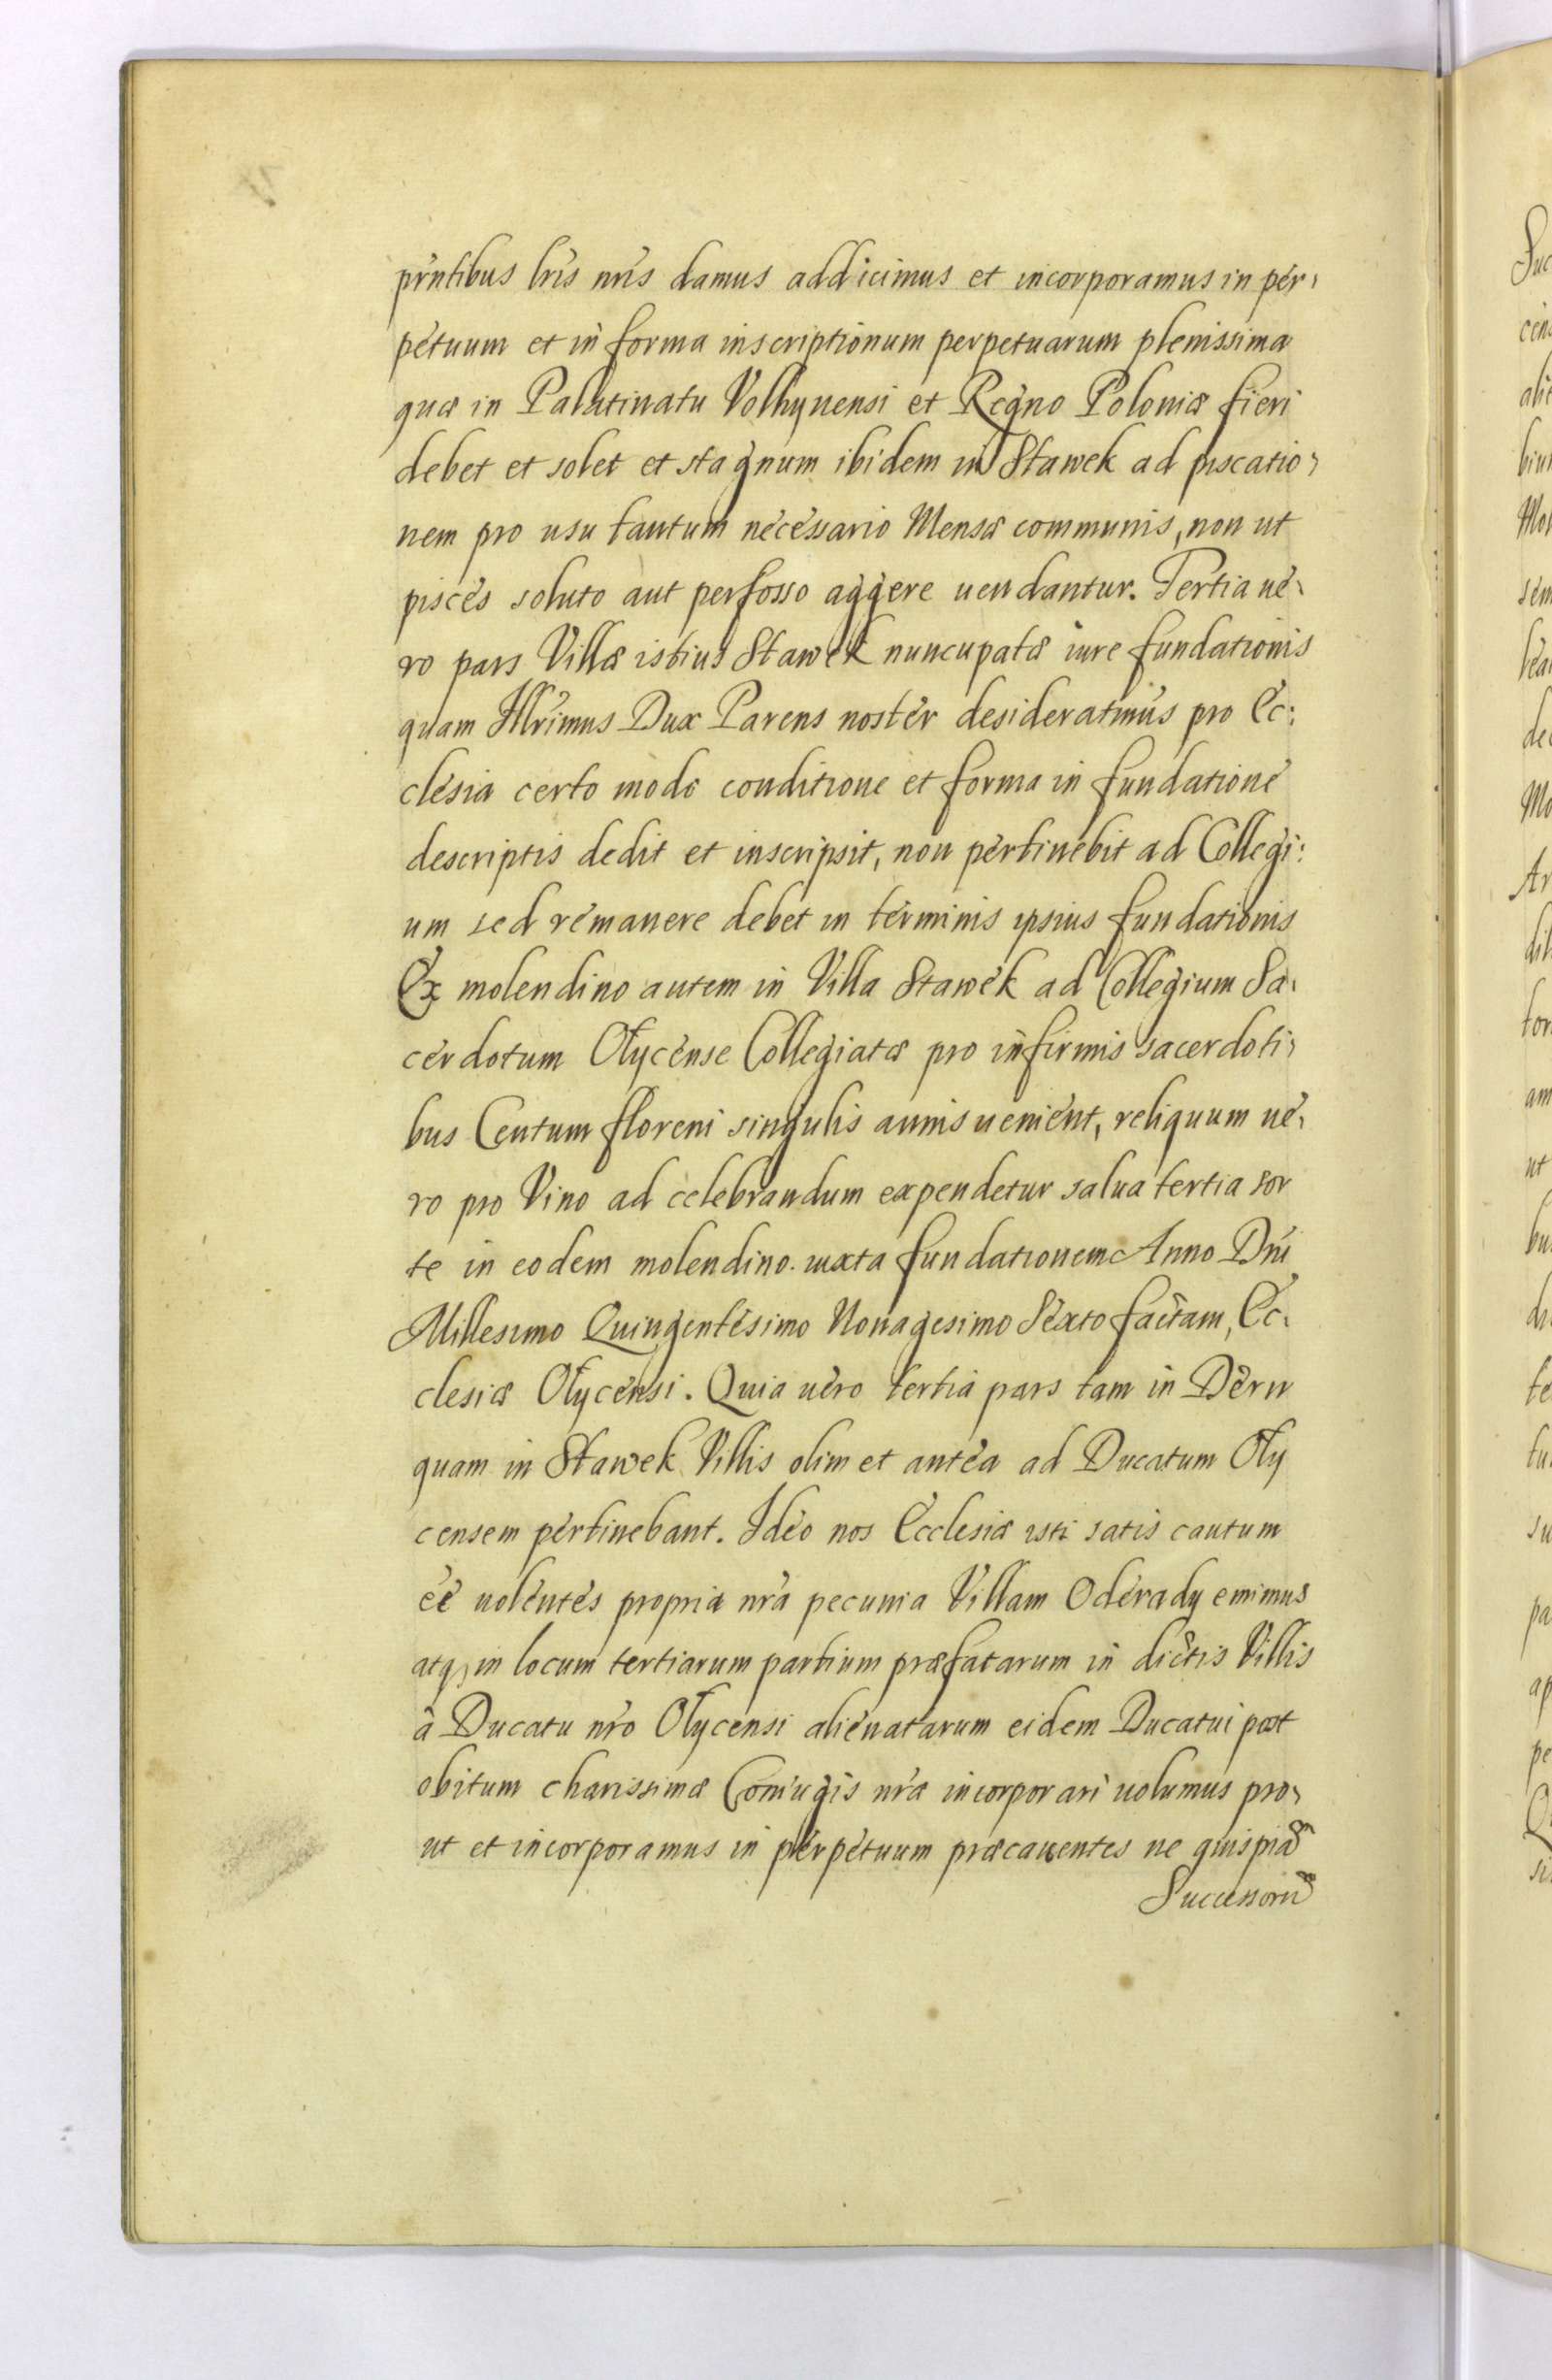 prñtibus lr̃is nr̃is damus addicimus et incorporamus in per,
petuum et in forma inscriptionum perpetuarum plenissima
quæ in Palatinatu Volhynensi et Regno Poloniæ fieri
debet et solet et stagnum ibidem in Stawek ad piscatio,
nem pro usu tantum necessario Mensæ communis, non ut
pisces soluto aut perfosso aggere uendantur. Tertia ue,
ro pars Villæ istius Stawek nuncupatæ iure fundationis
quam Illr̃imus Dux Parens noster desideratmus pro Ec:
clesia certo modo conditione et forma in fundatione
descriptis dedit et inscripsit, non pertinebit ad Collegi:
um sed remanere debet in terminis ipsius fundationis
Ex molendino autem in Villa Stawek ad Collegium Sa,
cerdotum Olycense Collegiatæ pro infirmis sacerdoti,
bus Centum floreni singulis annis uenient, reliquum ue,
ro pro Vino ad celebrandum expendetur salua tertia sor
te in eodem molendino. iuxta fundationem Anno Dñi
Millesimo Quingentesimo Nonagesimo Sexto factam, Ec,
clesiæ Olycensi. Quia uero tertia pars tam in Dern
quam in Stawek Villis olim et antea ad Ducatum Oly
censem pertinebant. Ideo nos Ecclesiæ isti satis cautum
ee uolentes propria nr̃a pecunia Villam Oderady emimus
atq, in locum tertiarum partium præfatarum in dictis Villis
â Ducatu nr̃o Olycensi alienatarum eidem Ducatui post
obitum charissimæ Coniugis nr̃æ incorporari uolumus pro,
ut et incorporamus in perpetuum præcauentes ne quispiã
Successorũ